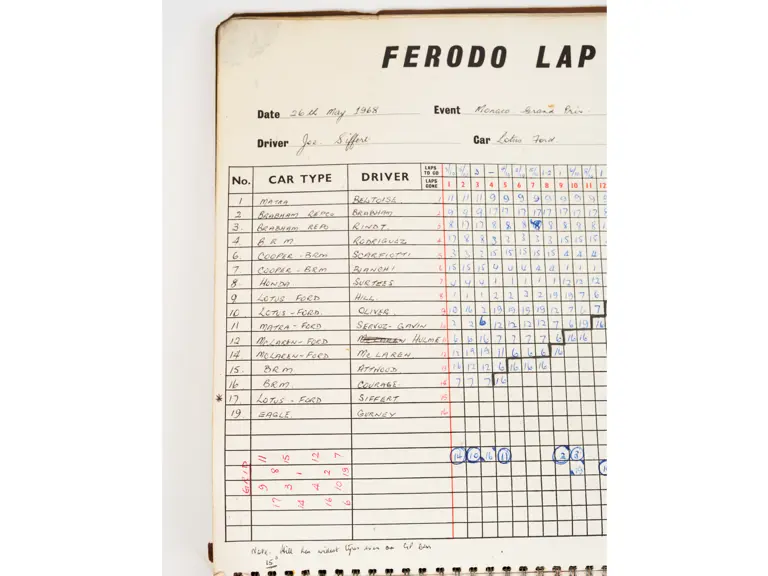 FERODO LAP
Date 26th May 1968 Event Monaco Grand Prix
Driver Joe Siffert Car Lotus Ford
No. CAR TYPE DRIVER LAPS TO GO
LAPS GONE 1 2 3 4 5 6 7 8 9 10 11 12
1 MATRA BELTOISE 1 11 11 11 9 9 9 9 9 9 9 9
2 BRABHAM REPCO BRABHAM 2 9 9 9 17 17 17 17 17 17 17 17
3 BRABHAM REPO RINDT 3 8 17 17 8 8 8 8 8 8 8
4 B R M RODRIGUEZ 4 17 8 8 3 3 3 3 15 15 15
6 COOPER-BRM SCARFIOTTI 5 3 3 15 15 15 15 4 4 4
7 COOPER-BRM BIANCHI 6 15 15 15 4 4 4 4 1 1 1
8 HONDA SURTEES 7 4 4 4 1 1 1 1 12 12 12
9 LOTUS FORD HILL 8 1 1 1 2 2 2 2 19 19 7 6
10 LOTUS-FORD OLIVER 9 10 16 2 19 19 19 19 12 7 6 7
11 MATRA-FORD SERVOZ-GAVIN 10 2 2 6 12 12 12 12 7 6 19 16
12 McLAREN-FORD HULME 11 6 6 16 7 7 7 7 6 16 16
14 McLAREN-FORD McLAREN 12 12 19 19 11 6 6 6 16
15 BRM ATTWOOD 13 16 12 12 6 16 16 16
16 BRM COURAGE 14 7 7 7 16
* 17 LOTUS-FORD SIFFERT 15
19 EAGLE GURNEY 16
14 10 16 11 2 3
GRID
11 15 12 7
8 1 2 19
9 3 4 10
17 14 16 6
Note. Hill has widest tyres seen on GP car
15"